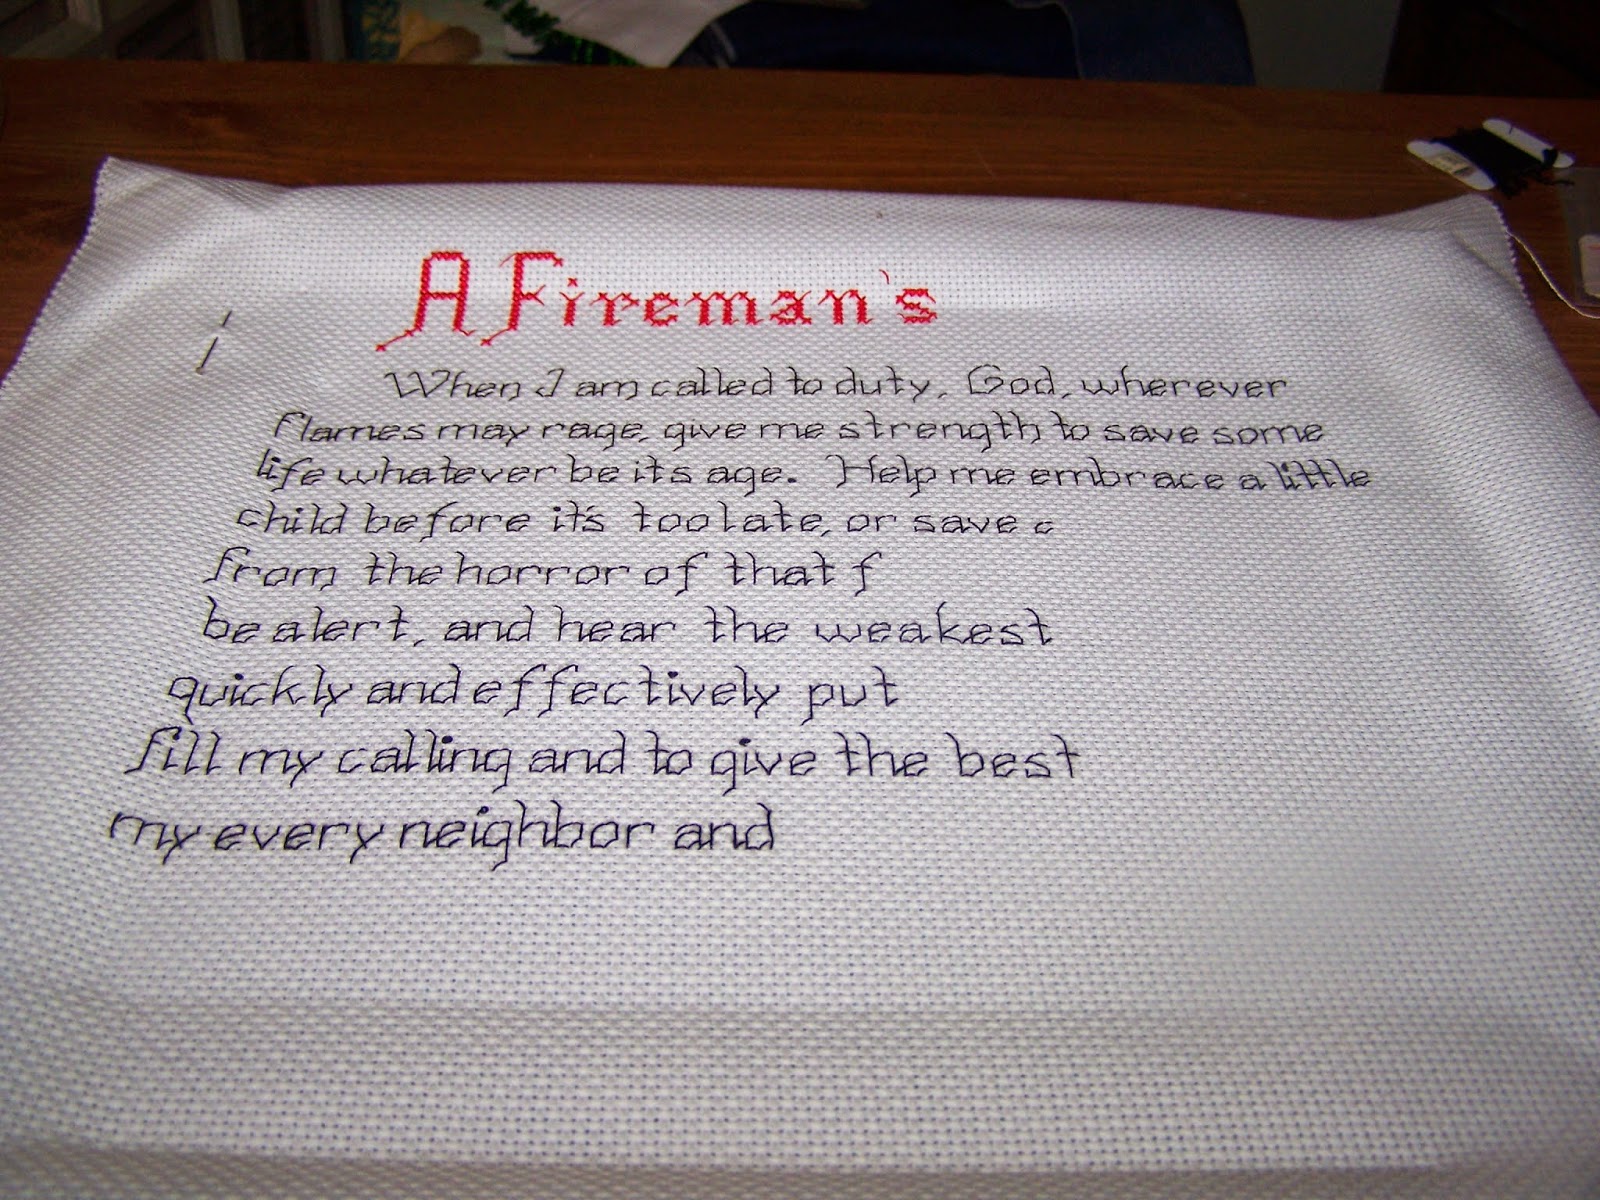 A Fireman's
When I am called to duty, God, wherever
flames may rage, give me strength to save some
life whatever be its age. Help me embrace a little
child before it's too late, or save c
from the horror of that f
be alert, and hear the weakest
quickly and effectively put
fill my calling and to give the best
my every neighbor and